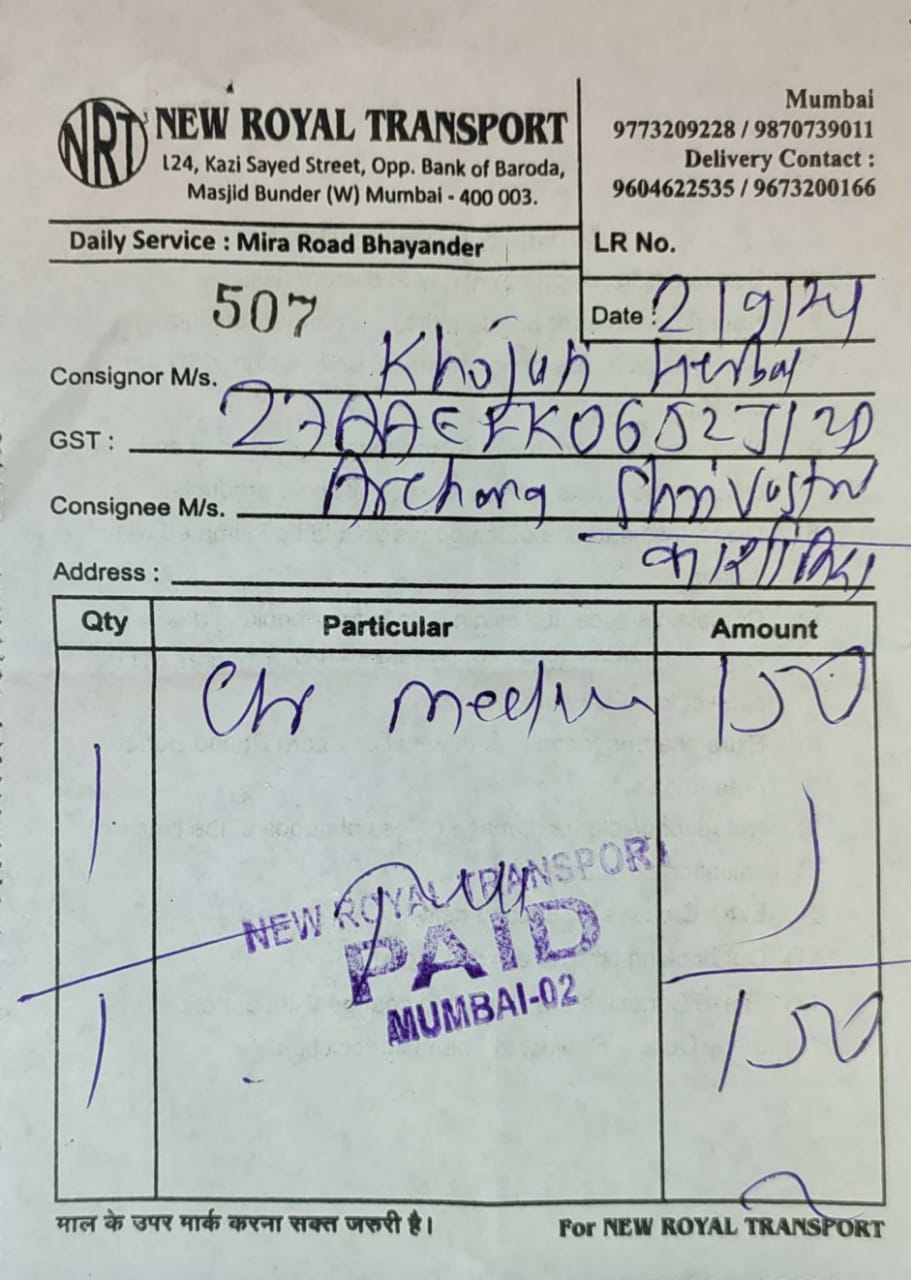 NRT NEW ROYAL TRANSPORT
124, Kazi Sayed Street, Opp. Bank of Baroda,
Masjid Bunder (W) Mumbai - 400 003.
Mumbai
9773209228 / 9870739011
Delivery Contact :
9604622535 / 9673200166
Daily Service : Mira Road Bhayander
LR No.
507
Date : 2/9/24
Consignor M/s. Khojati Herbal
GST :
Consignee M/s. Archana
Address :
Qty Particular Amount
150
1
NEW ROYAL TRANSPORT
PAID
MUMBAI-02
1 150
माल के उपर मार्क करना सक्त जरुरी है।
For NEW ROYAL TRANSPORT